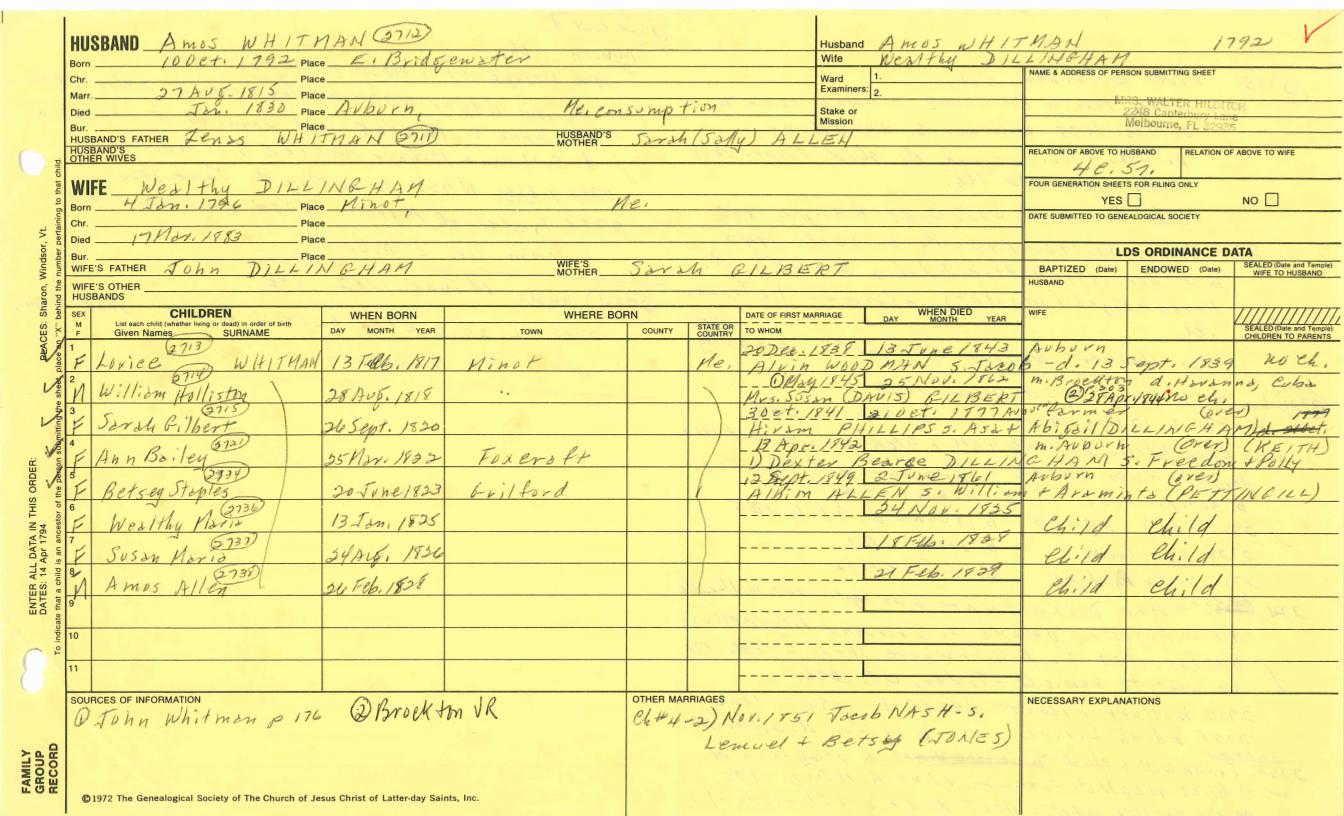 HUSBAND Amos WHITMAN (2712)
Born 10 Oct. 1792 Place E. Bridgewater
Chr. Place
Marr. 27 Aug. 1815 Place
Died Jan. 1830 Place Auburn, Me. consumption
Bur. Place
HUSBAND'S FATHER Zenas WHITMAN (2711) HUSBAND'S MOTHER Sarah (Sally) ALLEN
HUSBAND'S OTHER WIVES
Husband Amos WHITMAN 1792
Wife Wealthy DILLINGHAM
Ward Examiners: 1. 2.
Stake or Mission
NAME & ADDRESS OF PERSON SUBMITTING SHEET
MRS. WALTER
2218 Canterbury Lane
Melbourne, FL
RELATION OF ABOVE TO HUSBAND RELATION OF ABOVE TO WIFE
FOUR GENERATION SHEETS FOR FILING ONLY
YES NO
DATE SUBMITTED TO GENEALOGICAL SOCIETY
WIFE Wealthy DILLINGHAM
Born 4 Jan. 1796 Place Minot, Me.
Chr. Place
Died 17 Mar. 1883 Place
Bur. Place
WIFE'S FATHER John DILLINGHAM WIFE'S MOTHER Sarah GILBERT
WIFE'S OTHER HUSBANDS
LDS ORDINANCE DATA
BAPTIZED (Date) ENDOWED (Date) SEALED (Date and Temple) WIFE TO HUSBAND
HUSBAND
WIFE
SEALED (Date and Temple) CHILDREN TO PARENTS
SEX M F CHILDREN WHEN BORN WHERE BORN DATE OF FIRST MARRIAGE WHEN DIED
List each child (whether living or dead) in order of birth
Given Names SURNAME DAY MONTH YEAR TOWN COUNTY STATE OR COUNTRY TO WHOM DAY MONTH YEAR
1 F (2713) Lovice WHITMAN 13 Feb. 1817 Minot Me. 20 Dec. 1838 13 June 1843 Auburn
Alvin WOODMAN s. Jacob - d. 13 Sept. 1839 no ch.
2 M (2714) William Holliston 28 Aug. 1818 " ① May 1845 25 Nov. 1862 m. Brockton d. Havanna, Cuba
Mrs. Susan (DAVIS) GILBERT ② 28 Apr. 1844 No ch.
3 F (2715) Sarah Gilbert 26 Sept. 1820 3 Oct. 1841 21 Oct. 1877 farmer (over) 1877
Hiram PHILLIPS s. Asa + Abigail (DILLINGHAM)
4 F (2721) Ann Bailey 25 Mar. 1822 Foxcroft 13 Apr. 1842 m. Auburn (over) (KEITH)
1) Dexter Bearce DILLINGHAM s. Freedom + Polly
5 F (2734) Betsey Staples 20 June 1823 Guilford 2 Sept. 1849 2 June 1861 Auburn (over)
Albim ALLEN s. William + Araminta (PETTINGILL)
6 F (2736) Wealthy Maria 13 Jan. 1825 24 Nov. 1825 Child Child
7 F (2737) Susan Maria 24 Aug. 1826 18 Feb. 1828 Child Child
8 M (2738) Amos Allen 26 Feb. 1828 21 Feb. 1829 Child Child
9
10
11
SOURCES OF INFORMATION
① John Whitman p 176 ② Brockton VR
OTHER MARRIAGES
Ch #4-2) Nov. 1851 Jacob NASH - s.
Lemuel + Betsey (JONES)
NECESSARY EXPLANATIONS
©1972 The Genealogical Society of The Church of Jesus Christ of Latter-day Saints, Inc.
FAMILY GROUP RECORD
ENTER ALL DATA IN THIS ORDER:
DATES: 14 Apr 1794 PLACES: Sharon, Windsor, Vt.
To indicate that a child is an ancestor of the person submitting the sheet, place an "X" behind the number pertaining to that child.